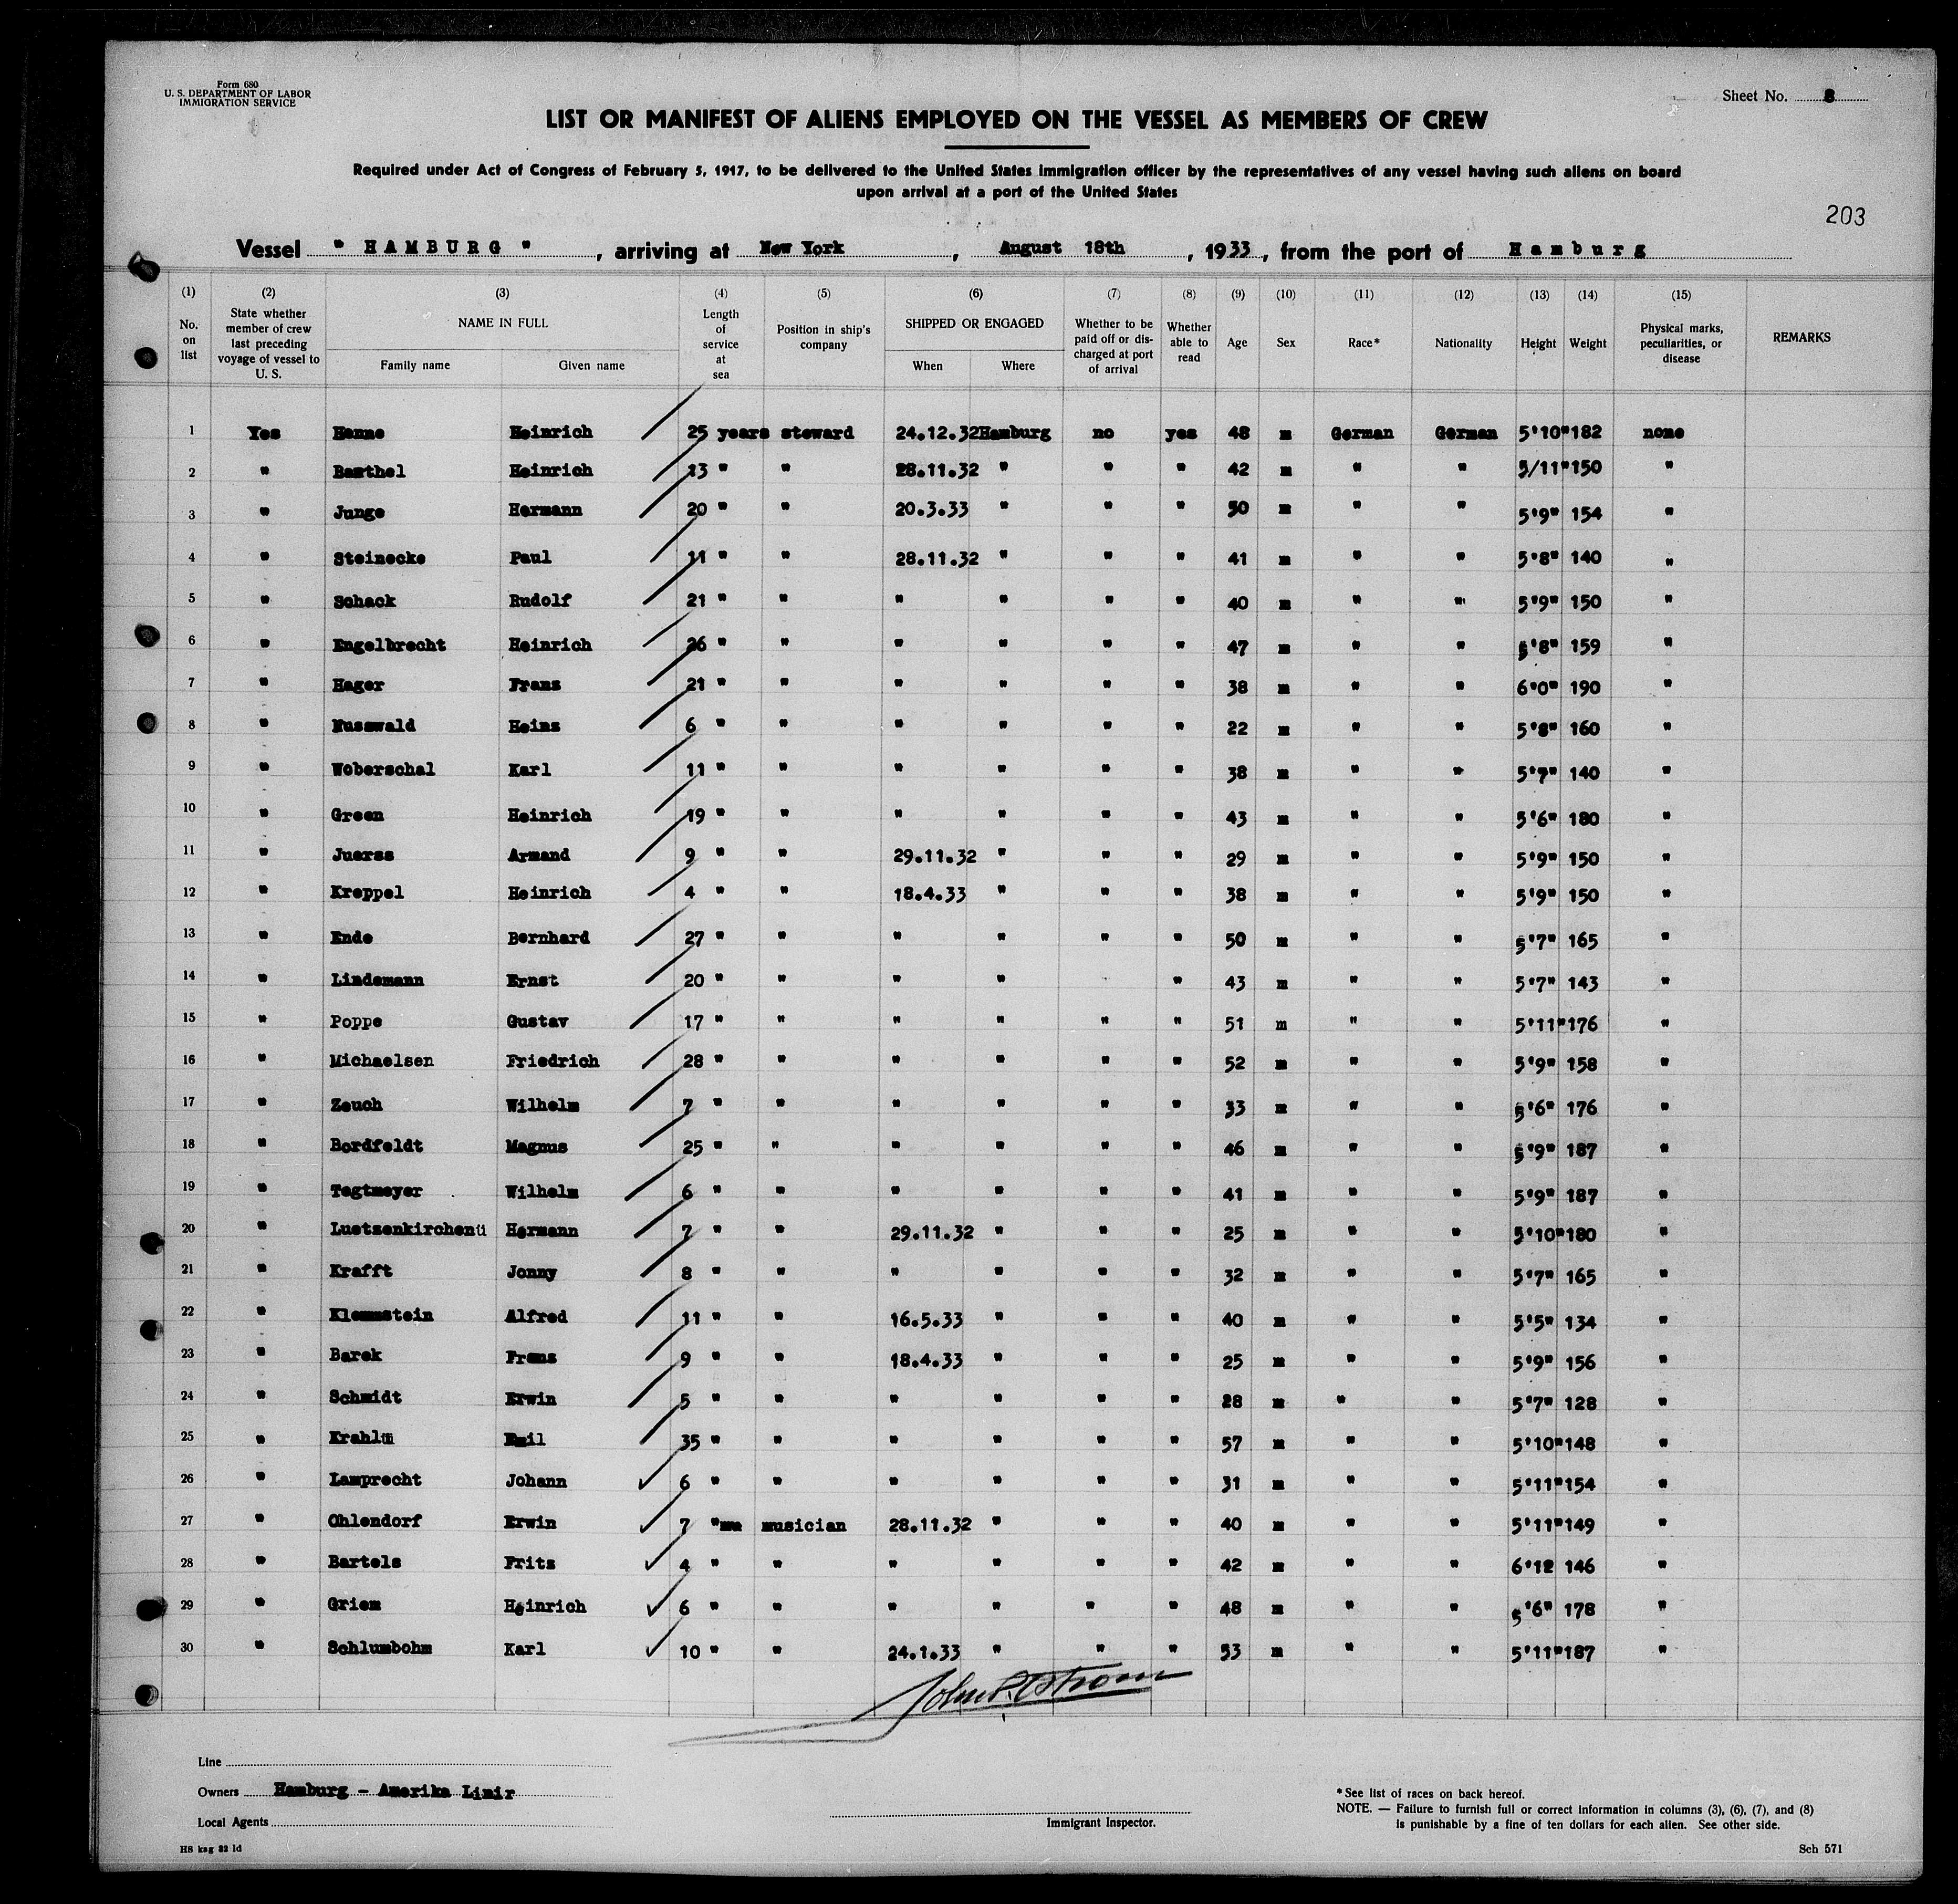 Form 680
U. S. DEPARTMENT OF LABOR
IMMIGRATION SERVICE
Sheet No. 8
LIST OR MANIFEST OF ALIENS EMPLOYED ON THE VESSEL AS MEMBERS OF CREW
Required under Act of Congress of February 5, 1917, to be delivered to the United States immigration officer by the representatives of any vessel having such aliens on board
upon arrival at a port of the United States
203
Vessel " HAMBURG " , arriving at New York , August 18th , 1933 , from the port of Hamburg
(1) (2) (3) (4) (5) (6) (7) (8) (9) (10) (11) (12) (13) (14) (15)
No. on list State whether member of crew last preceding voyage of vessel to U. S. NAME IN FULL Family name Given name Length of service at sea Position in ship's company SHIPPED OR ENGAGED When Where Whether to be paid off or dis- charged at port of arrival Whether able to read Age Sex Race* Nationality Height Weight Physical marks, peculiarities, or disease REMARKS
1 Yes Henne Heinrich 25 years steward 24.12.32 Hamburg no yes 48 m German German 5'10" 182 none
2 " Barthel Heinrich 13 " " 28.11.32 " " " 42 m " " 5/11" 150 "
3 " Junge Hermann 20 " " 20.3.33 " " " 50 m " " 5'9" 154 "
4 " Steinecke Paul 11 " " 28.11.32 " " " 41 m " " 5'8" 140 "
5 " Schack Rudolf 21 " " " " " " 40 m " " 5'9" 150 "
6 " Engelbrecht Heinrich 26 " " " " " " 47 m " " 5'8" 159 "
7 " Hager Franz 21 " " " " " " 38 m " " 6'0" 190 "
8 " Nusswald Heinz 6 " " " " " " 22 m " " 5'8" 160 "
9 " Woberschal Karl 11 " " " " " " 38 m " " 5'7" 140 "
10 " Green Heinrich 19 " " " " " " 43 m " " 5'6" 180 "
11 " Juerss Armand 9 " " 29.11.32 " " " 29 m " " 5'9" 150 "
12 " Kreppel Heinrich 4 " " 18.4.33 " " " 38 m " " 5'9" 150 "
13 " Ende Bernhard 27 " " " " " " 50 m " " 5'7" 165 "
14 " Lindemann Ernst 20 " " " " " 43 m " " 5'7" 143 "
15 " Poppe Gustav 17 " " " " " " 51 m " " 5'11" 176 "
16 " Michaelsen Friedrich 28 " " " " " " 52 m " " 5'9" 158 "
17 " Zeuch Wilhelm 7 " " " " " " 33 m " " 5'6" 176 "
18 " Bordfeldt Magnus 25 " " " " " " 46 m " " 5'9" 187 "
19 " Tegtmeyer Wilhelm 6 " " " " " " 41 m " " 5'9" 187 "
20 " Luetzenkirchenü Hermann 7 " " 29.11.32 " " " 25 m " " 5'10" 180 "
21 " Krafft Jonny 8 " " " " " " 32 m " " 5'7" 165 "
22 " Klemmstein Alfred 11 " " 16.5.33 " " " 40 m " " 5'5" 134 "
23 " Barek Franz 9 " " 18.4.33 " " " 25 m " " 5'9" 156 "
24 " Schmidt Erwin 5 " " " " " " 28 m " " 5'7" 128 "
25 " Emil 35 " " " " " " 57 m " " 5'10" 148 "
26 " Lamprecht Johann 6 " " " " " " 31 m " " 5'11" 154 "
27 " Ohlendorf Erwin 7 " musician 28.11.32 " " " 40 m " " 5'11" 149 "
28 " Bartels Fritz 4 " " " " " " 42 m " " 6'12 146 "
29 " Griem Heinrich 6 " " " " " " 48 m " " 5'6" 178 "
30 " Schlumbohm Karl 10 " " 24.1.33 " " " 53 m " " 5'11" 187 "
Line
Owners Hamburg - Amerika Linir
Local Agents
Immigrant Inspector.
* See list of races on back hereof.
NOTE. — Failure to furnish full or correct information in columns (3), (6), (7), and (8)
is punishable by a fine of ten dollars for each alien. See other side.
HS kag 32 1d
Sch 571